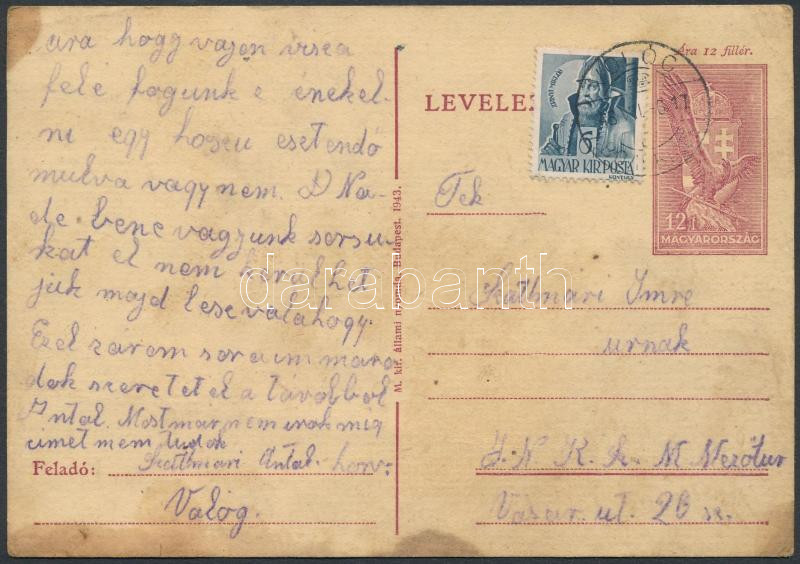 ura hogy vajon visza
felé fogunk e énekel-
ni egy hoszu esztendő
mulva vagy nem. D Na-
de bene vagyunk sorsu-
kat el nem kerülhet
jük majd lesz valahogy.
Ezel zárom soraim mara
dok szeretetel a távolból
Antal. Mostmár nem irok mig
cimet nem tudok
Feladó: Szattmári Antal. honv.
Valóg.
M. kir. állami nyomda, Budapest. 1943.
Ára 12 fillér.
LEVELEZ
MAGYAR KIR. POSTA
12 f
MAGYARORSZÁG
Tek
Szattmári Imre
urnak
J. N. K. Sz. M Mezőtur
Vásár. ut. 26 sz.
darabanth